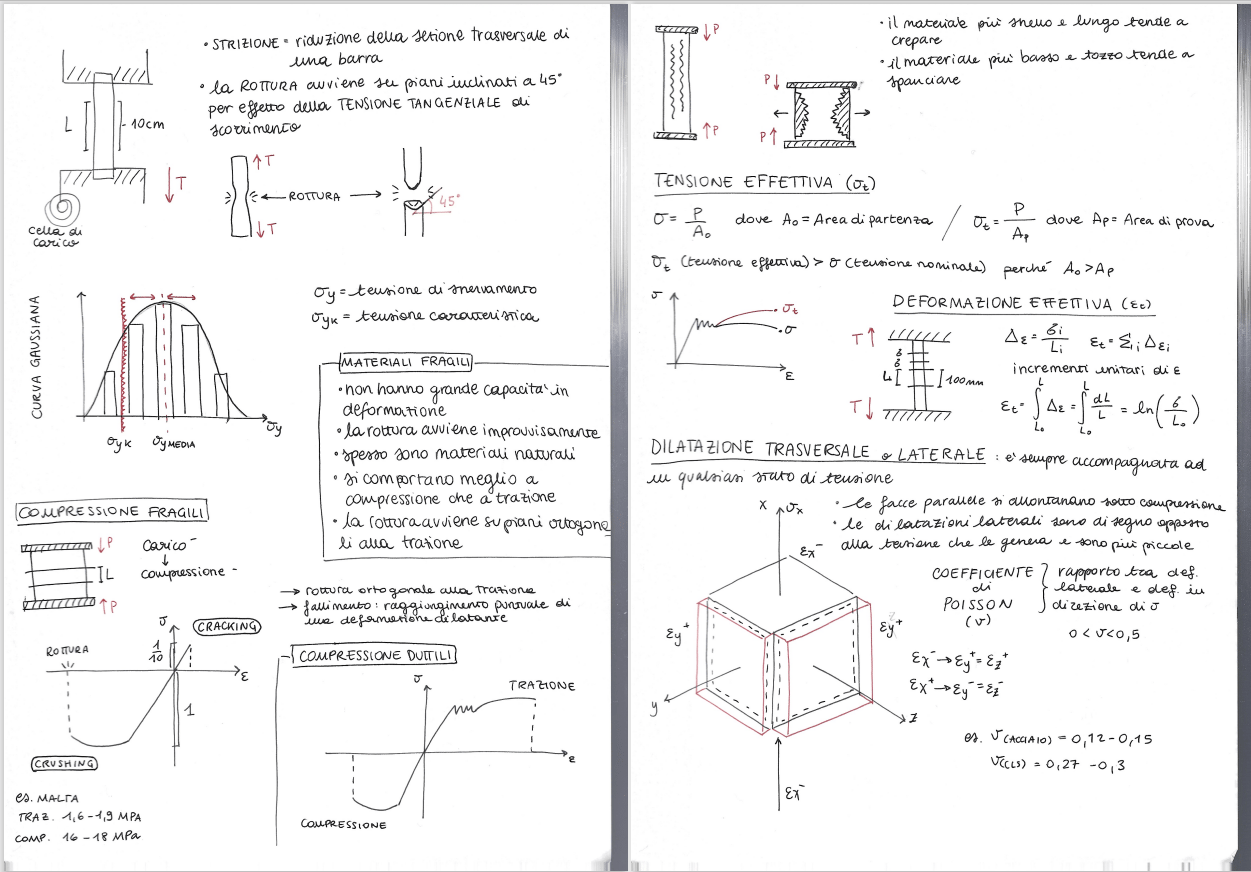 • STRIZIONE = riduzione della sezione trasversale di
una barra
• la ROTTURA avviene su piani inclinati a 45°
per effetto della TENSIONE TANGENZIALE di
scorrimento
L
10cm
T
cella di
carico
T
T
ROTTURA
45°
CURVA GAUSSIANA
σyk
σy MEDIA
σy
σy = tensione di snervamento
σyk = tensione caratteristica
MATERIALI FRAGILI
• non hanno grande capacita' in
deformazione
• la rottura avviene improvvisamente
• spesso sono materiali naturali
• si comportano meglio a
compressione che a trazione
• la rottura avviene su piani ortogona
li alla trazione
COMPRESSIONE FRAGILI
P
L
P
carico -
↓
compressione -
→ rottura ortogonale alla trazione
→ fallimento: raggiungimento puntuale di
una deformazione dilatante
σ
CRACKING
1/10
ROTTURA
ε
1
CRUSHING
es. MALTA
TRAZ. 1,6 - 1,9 MPa
COMP. 16 - 18 MPa
COMPRESSIONE DUTTILI
σ
TRAZIONE
ε
COMPRESSIONE
P
P
P
P
• il materiale più snello e lungo tende a
crepare
• il materiale più basso e tozzo tende a
spanciare
TENSIONE EFFETTIVA (σt)
σ = P/A₀ dove A₀ = Area di partenza / σt = P/Ap dove Ap = Area di prova
σt (tensione effettiva) > σ (tensione nominale) perché A₀ > Ap
σ
σt
σ
ε
DEFORMAZIONE EFFETTIVA (εt)
T
δ
δ
Li
100mm
T
Δε = δi/Li εt = Σi Δεi
incrementi unitari di ε
εt = ∫L₀^L Δε = ∫L₀^L dL/L = ln(δ/L₀)
DILATAZIONE TRASVERSALE o LATERALE : e' sempre accompagnata ad
un qualsiasi stato di tensione
• le facce parallele si allontanano sotto compressione
• le dilatazioni laterali sono di segno opposto
alla tensione che le genera e sono più piccole
x
σx
εx⁻
εy⁺
εy⁺
y
z
εx⁻
COEFFICIENTE
di
POISSON
(ν)
rapporto tra def.
laterale e def. in
direzione di σ
0 < ν < 0,5
εx⁻ → εy⁺ = εz⁺
εx⁺ → εy⁻ = εz⁻
es. ν(ACCIAIO) = 0,12 - 0,15
ν(CLS) = 0,27 - 0,3